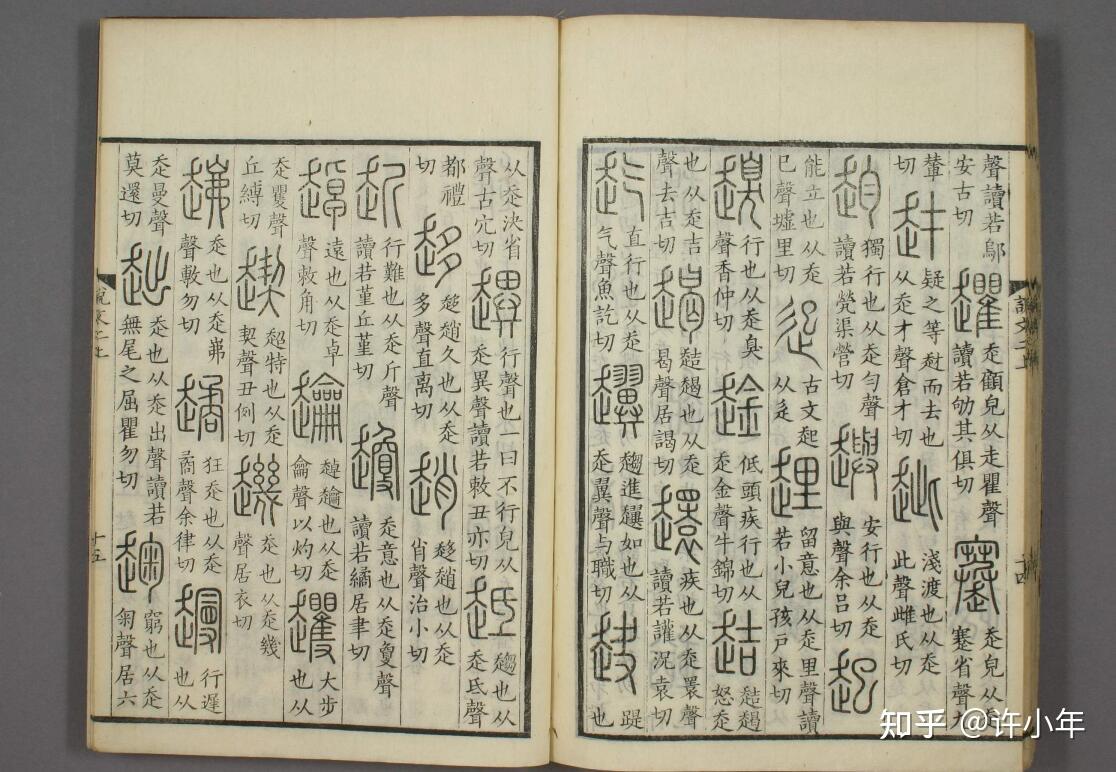 聲讀若鄔安古切 走顧皃从走瞿聲讀若劬其俱切 走皃从走蹇省聲九
輦切 疑之等而去也从走才聲倉才切 淺渡也从走此聲雌氏切
赹 獨行也从走勻聲讀若煢渠營切 安行也从走與聲余呂切 起
能立也从走巳聲墟里切 古文起从辵 留意也从走里聲讀若小兒孩戶來切
行也从走臭聲香仲切 趛 低頭疾行也从走金聲牛錦切 趌 趌𧼨怒走
也从走吉聲去吉切 𧼨 趌𧼨也从走曷聲居謁切 疾也从走瞏聲讀若讙況袁切
直行也从走气聲魚訖切 趨進如也从走翼聲与職切 踶也
說文二上
十四
从走決省聲古穴切 趩 行聲也一曰不行皃从走異聲讀若敕丑亦切 趨也从走氐聲
都禮切 趍 趍趙久也从走多聲直离切 趙 趍趙也从走肖聲治小切
赾 行難也从走斤聲讀若堇丘堇切 走意也从走夐聲讀若繘居聿切
趠 遠也从走卓聲敕角切 趠也从走龠聲以灼切 大步也从
走矍聲丘縛切 超特也从走契聲丑例切 走也从走幾聲居衣切
走也从走岪聲敷勿切 狂走也从走矞聲余律切 行遲也从
走曼聲莫還切 走也从走出聲讀若無尾之屈瞿勿切 趜 窮也从走匊聲居六
說文二上
十五
知乎 @许小年